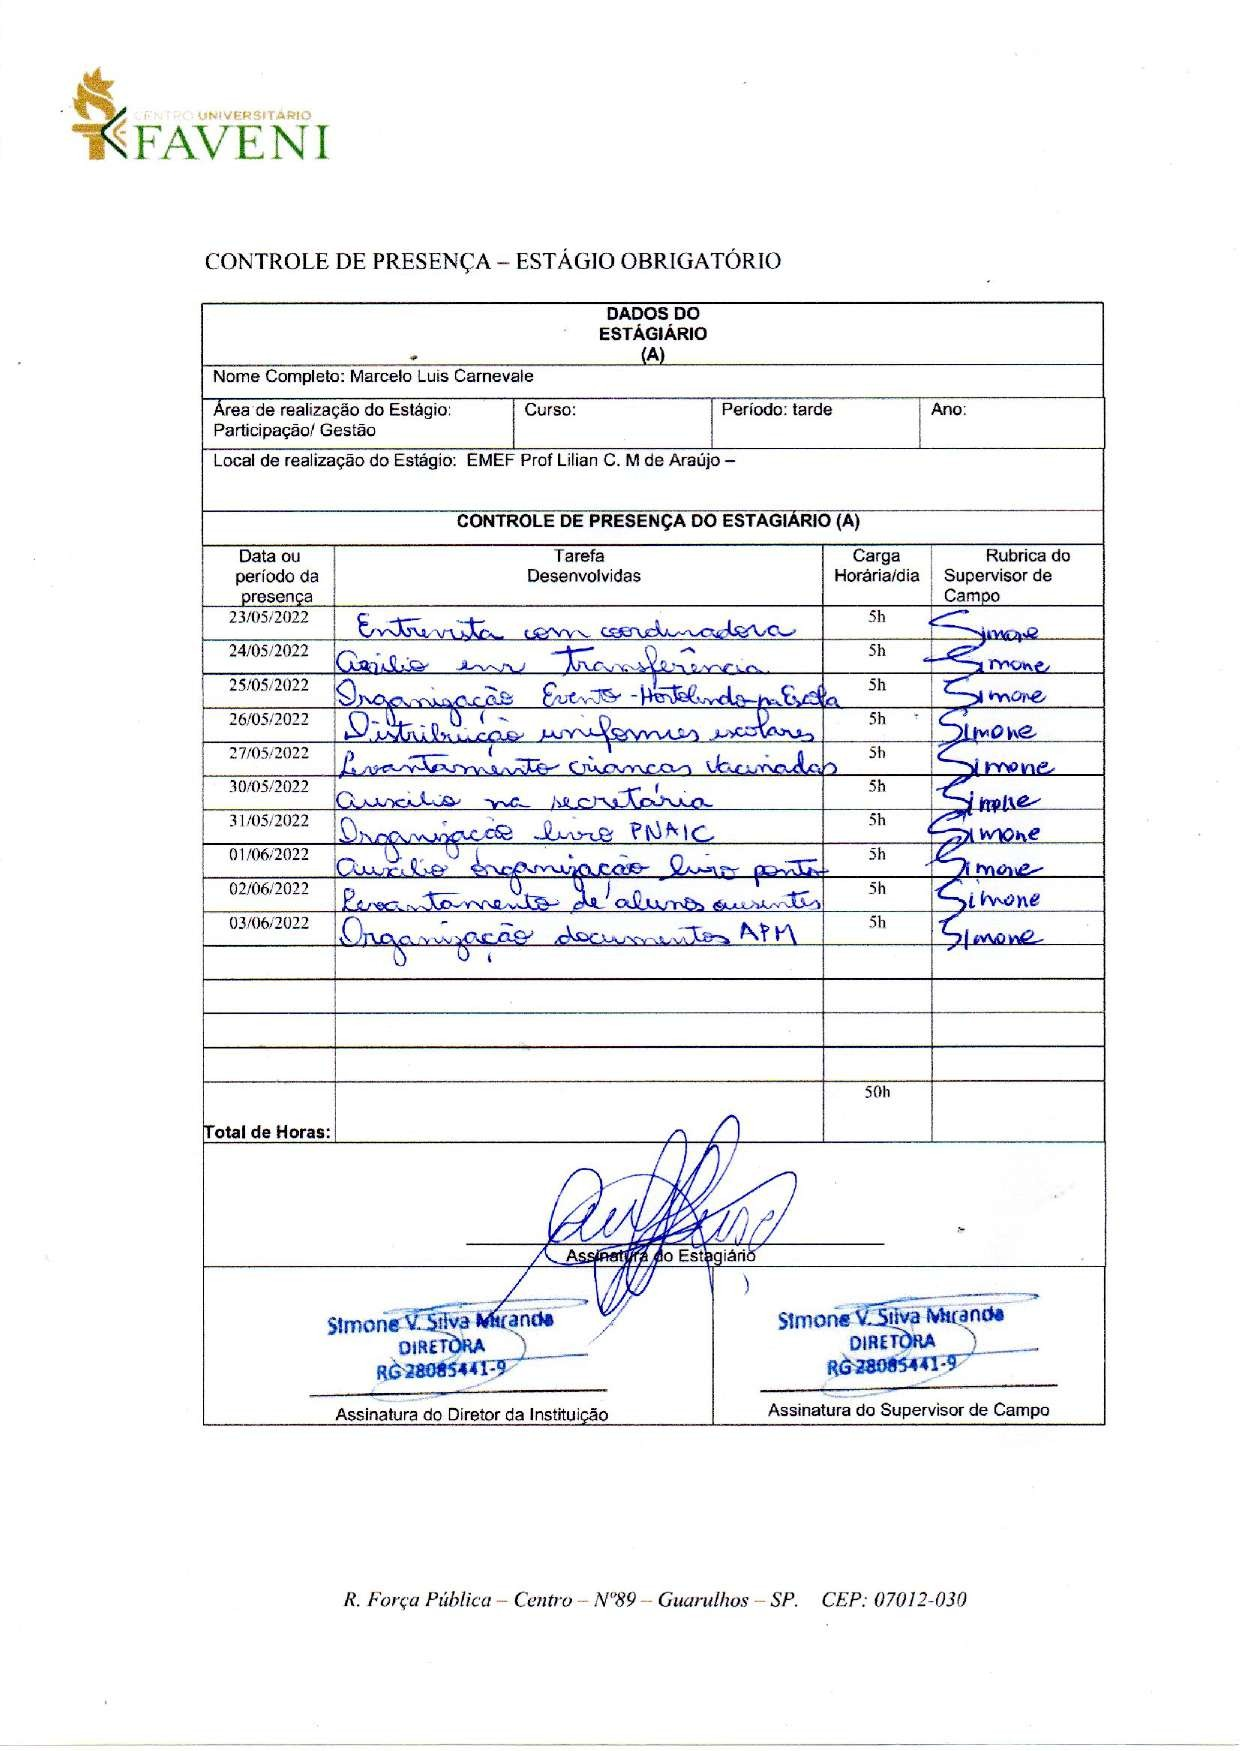 CENTRO UNIVERSITÁRIO
FAVENI
CONTROLE DE PRESENÇA – ESTÁGIO OBRIGATÓRIO
DADOS DO
ESTÁGIÁRIO
(A)
Nome Completo: Marcelo Luis Carnevale
Área de realização do Estágio: Participação/ Gestão
Curso:
Período: tarde
Ano:
Local de realização do Estágio: EMEF Prof Lilian C. M de Araújo –
CONTROLE DE PRESENÇA DO ESTAGIÁRIO (A)
Data ou período da presença
Tarefa Desenvolvidas
Carga Horária/dia
Rubrica do Supervisor de Campo
23/05/2022 Entrevista com coordenadora 5h Simone
24/05/2022 Auxilio em transferência 5h Simone
25/05/2022 Organização Evento - Hortolindo na Escola 5h Simone
26/05/2022 Distribuição uniformes escolares 5h Simone
27/05/2022 Levantamento crianças vacinadas 5h Simone
30/05/2022 Auxilio na secretária 5h Simone
31/05/2022 Organização livro PNAIC 5h Simone
01/06/2022 Auxilio organização livro ponto 5h Simone
02/06/2022 Levantamento de alunos ausentes 5h Simone
03/06/2022 Organização documentos APM 5h Simone
Total de Horas: 50h
Assinatura do Estagiário
Simone V. Silva Miranda
DIRETORA
RG 28085441-9
Assinatura do Diretor da Instituição
Simone V. Silva Miranda
DIRETORA
RG 28085441-9
Assinatura do Supervisor de Campo
R. Força Pública – Centro – Nº89 – Guarulhos – SP. CEP: 07012-030